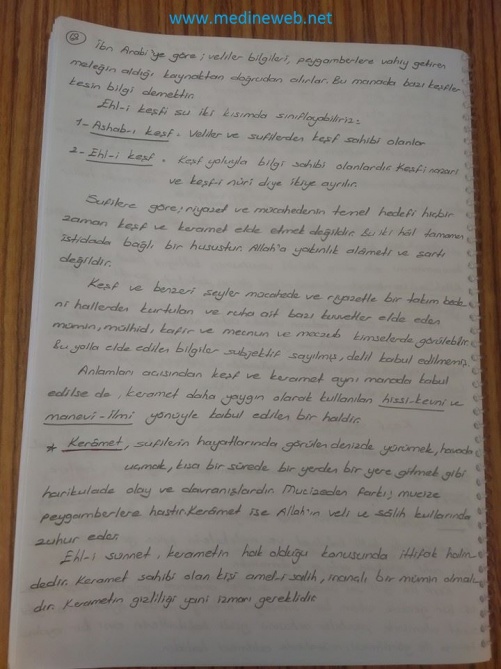 www.medineweb.net
2
İbn Arabi'ye göre; veliler bilgileri, peygamberlere vahiy getiren
meleğin aldığı kaynaktan doğrudan alırlar. Bu manada bazı keşifler,
kesin bilgi demektir.
Ehl-i keşfi şu iki kısımda sınıflayabiliriz:
1- Ashab-ı keşf. Veliler ve sufilerden keşf sahibi olanlar
2- Ehl-i keşf. Keşf yoluyla bilgi sahibi olanlardır. Keşf-i nazari
ve keşf-i nûri diye ikiye ayrılır.
Sufilere göre; riyazet ve mücahedenin temel hedefi hiçbir
zaman keşf ve keramet elde etmek değildir. Bu iki hâl tamamen
istidada bağlı bir husustur. Allah'a yakınlık alâmeti ve şartı
değildir.
Keşf ve benzeri şeyler mücahede ve riyazetle bir takım bede-
ni hallerden kurtulan ve ruha ait bazı kuvvetler elde eden
mümin, mülhid, kafir ve mecnun ve meczub kimselerde görülebilir.
Bu yolla elde edilen bilgiler subjektif sayılmış, delil kabul edilmemiş.
Anlamları açısından keşf ve keramet aynı manada kabul
edilse de, keramet daha yaygın olarak kullanılan hissi-kevni ve
manevi-ilmi yönüyle kabul edilen bir haldir.
* Kerâmet, sufilerin hayatlarında görülen denizde yürümek, havada
uçmak, kısa bir sürede bir yerden bir yere gitmek gibi
harikulade olay ve davranışlardır. Mucizeden farkı; mucize
peygamberlere hastır. Kerâmet ise Allah'ın veli ve sâlih kullarında
zuhur eder.
Ehl-i sünnet, kerametin hak olduğu konusunda ittifak halin-
dedir. Keramet sahibi olan kişi amel-i salih, inançlı bir mümin olmalı-
dır. Kerametin gizliliği yani izmarı gereklidir.